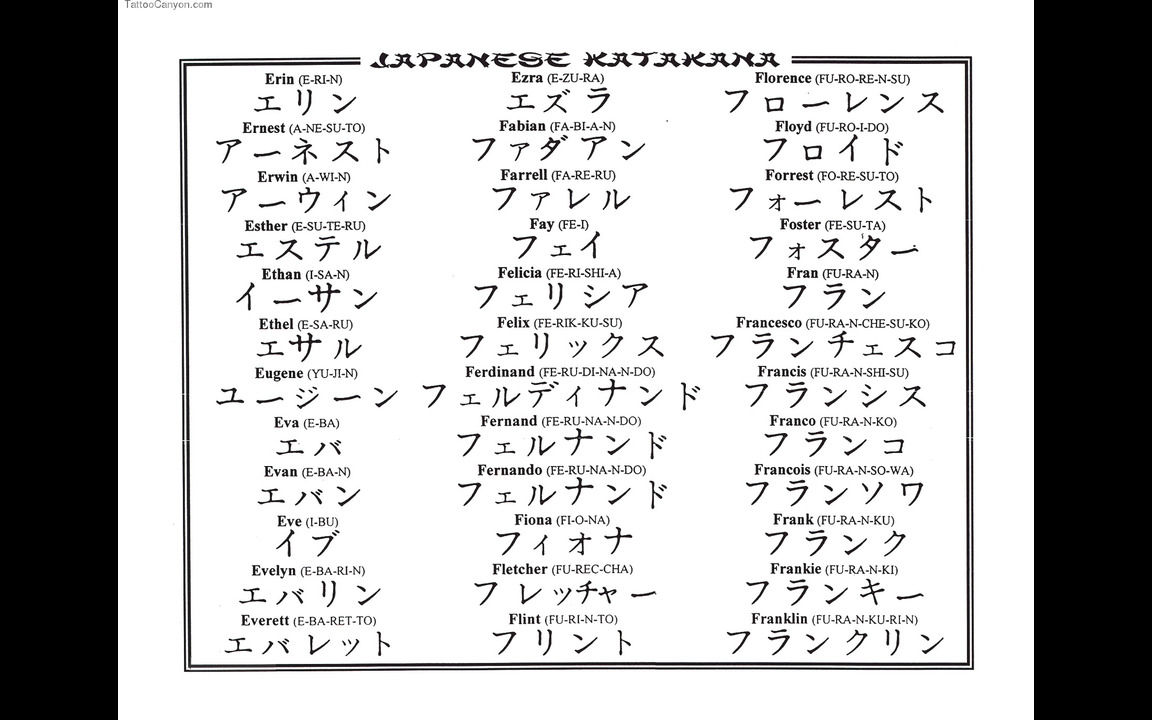 TattooCanyon.com
JAPANESE KATAKANA
Erin (E-RI-N)
エリン
Ernest (A-NE-SU-TO)
アーネスト
Erwin (A-WI-N)
アーウィン
Esther (E-SU-TE-RU)
エステル
Ethan (I-SA-N)
イーサン
Ethel (E-SA-RU)
エサル
Eugene (YU-JI-N)
ユージーン
Eva (E-BA)
エバ
Evan (E-BA-N)
エバン
Eve (I-BU)
イブ
Evelyn (E-BA-RI-N)
エバリン
Everett (E-BA-RET-TO)
エバレット
Ezra (E-ZU-RA)
エズラ
Fabian (FA-BI-A-N)
ファダアン
Farrell (FA-RE-RU)
ファレル
Fay (FE-I)
フェイ
Felicia (FE-RI-SHI-A)
フェリシア
Felix (FE-RIK-KU-SU)
フェリックス
Ferdinand (FE-RU-DI-NA-N-DO)
フェルディナンド
Fernand (FE-RU-NA-N-DO)
フェルナンド
Fernando (FE-RU-NA-N-DO)
フェルナンド
Fiona (FI-O-NA)
フィオナ
Fletcher (FU-REC-CHA)
フレッチャー
Flint (FU-RI-N-TO)
フリント
Florence (FU-RO-RE-N-SU)
フローレンス
Floyd (FU-RO-I-DO)
フロイド
Forrest (FO-RE-SU-TO)
フォーレスト
Foster (FE-SU-TA)
フォスター
Fran (FU-RA-N)
フラン
Francesco (FU-RA-N-CHE-SU-KO)
フランチェスコ
Francis (FU-RA-N-SHI-SU)
フランシス
Franco (FU-RA-N-KO)
フランコ
Francois (FU-RA-N-SO-WA)
フランソワ
Frank (FU-RA-N-KU)
フランク
Frankie (FU-RA-N-KI)
フランキー
Franklin (FU-RA-N-KU-RI-N)
フランクリン